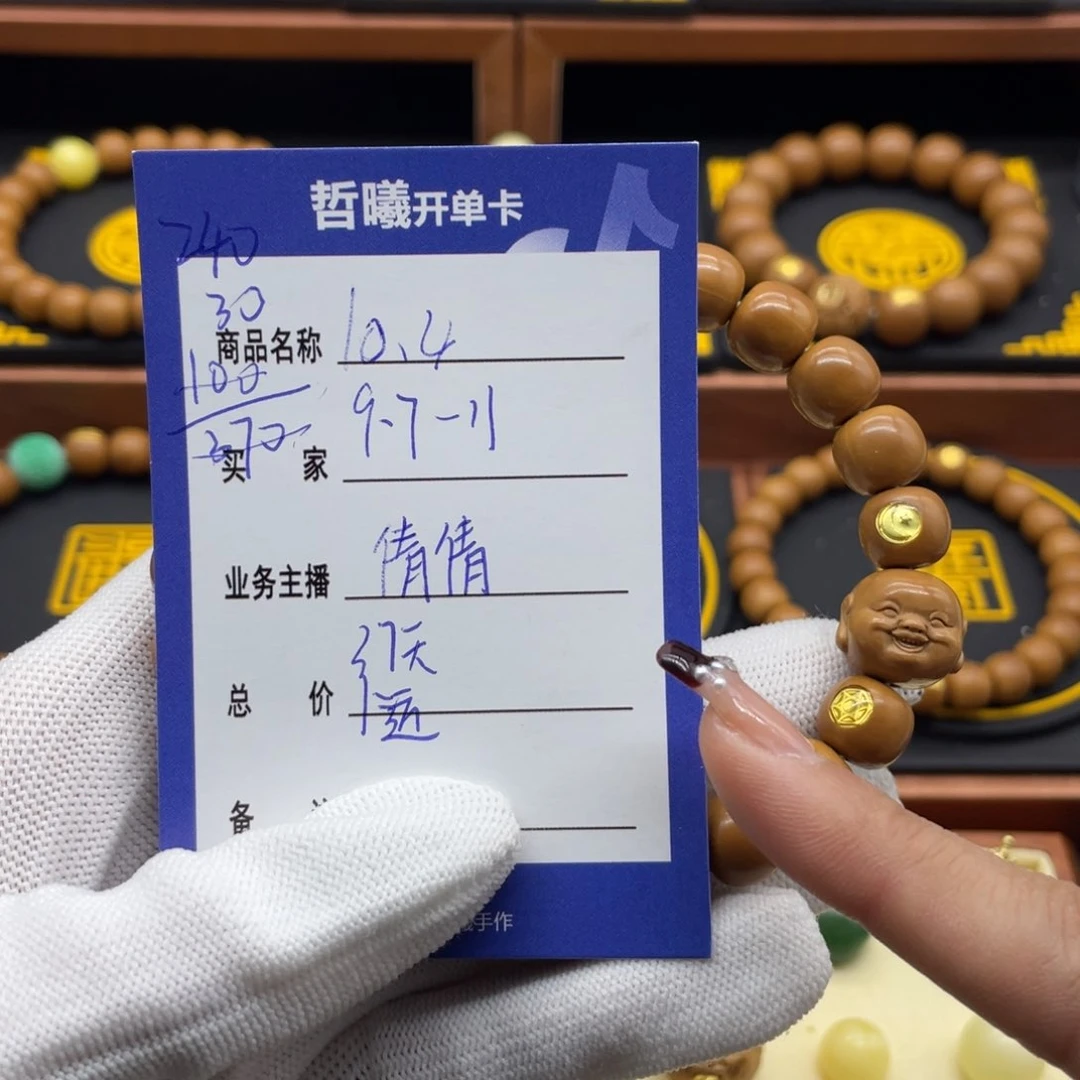 哲曦开单卡
240
30
商品名称 10.4
100
370
买 家 9.7-11
业务主播 倩倩
总 价
备
手作